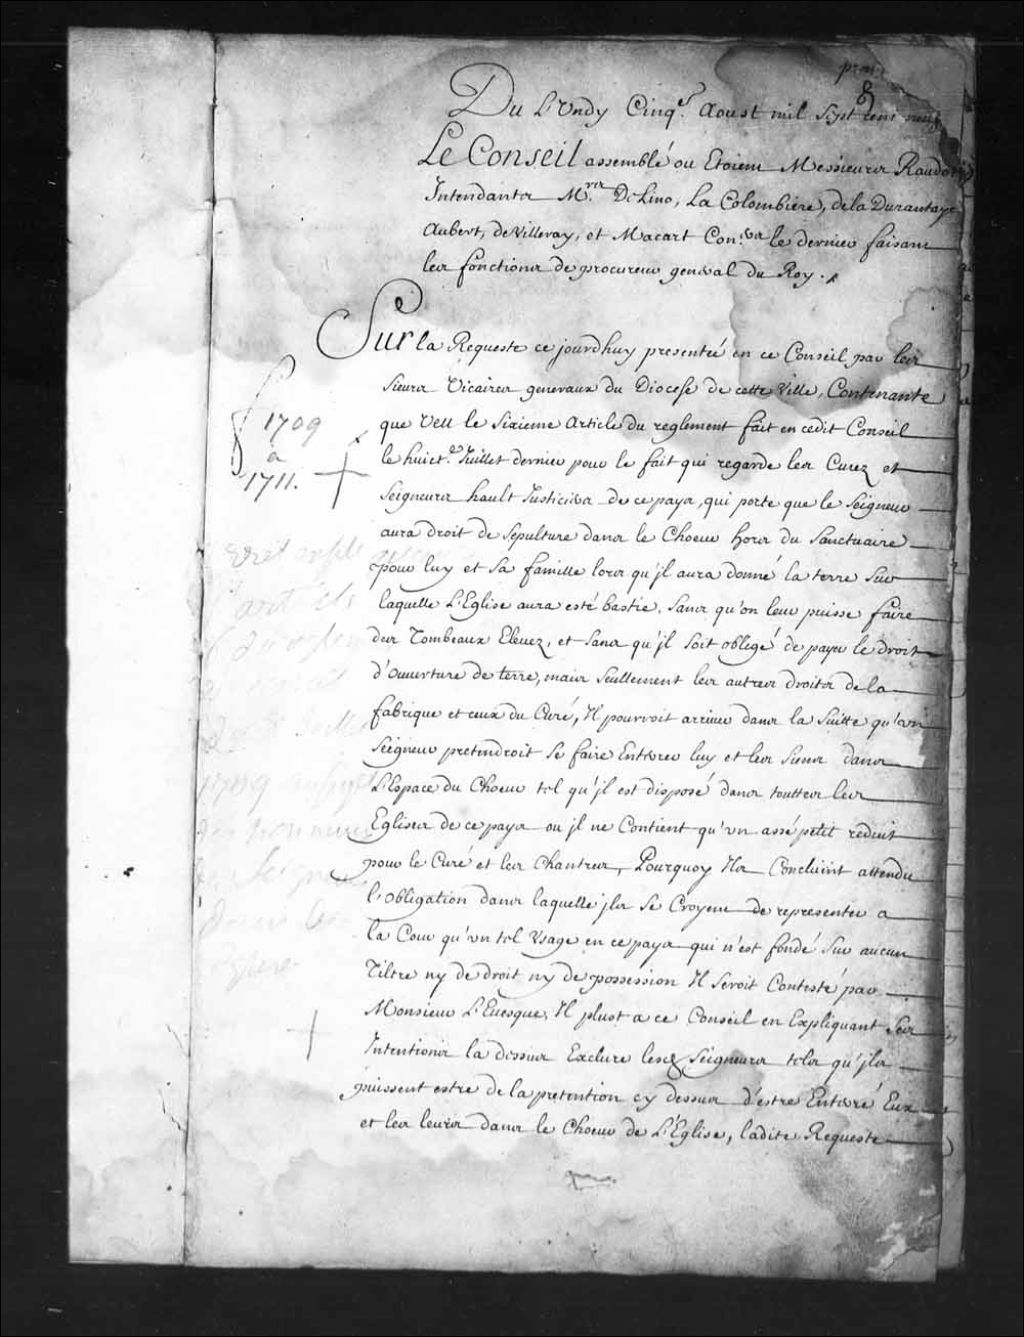 prem
Du Lundy Cinq.e Aoust mil sept cens neuf
Le Conseil assemblé ou Etoient Messieurs Raudots
Intendants M.rs DeLino, La Colombiere, de la Durantaye
Aubert, de Villeray, et Macart Con.ers le dernier faisant
les fonctions de procureur general du Roy.
Sur la Requeste ce jourdhuy presenteé en ce Conseil par les
sieurs Vicaires generaux du Diocese de cette Ville, Contenante
que Veu le sixieme Article du reglement fait en cedit Conseil
le huict.e Juillet dernier pour le fait qui regarde les Curez et
Seigneurs hault Justiciers de ce pays, qui porte que le Seigneur
aura droit de sepulture dans le Choeur hors du Sanctuaire
pour luy et sa famille lors qu'jl aura donné la terre sur
laquelle L'Eglise aura esté bastie, sans qu'on leur puisse faire
des Tombeaux Elevez, et sans qu'jl soit obligé de payer le droit
d'ouverture de terre, mais seullement les autres droits de la
fabrique et ceux du Curé, Il pourroit arriver dans la suitte qu'un
Seigneur pretendroit se faire Enterrer luy et les siens dans
L'Espace du Choeur tel qu'jl est disposé dans touttes les
Eglises de ce pays ou jl ne Contient qu'vn assé petit reduit
pour le Curé et les Chantres, Pourquoy Ils Concluent attendu
l'Obligation dans laquelle jls se Croyent de representer a
la Cour qu'vn tel Vsage en ce pays qui n'est fondé sur aucun
Tiltre ny de droit ny de possession Il seroit Contesté par
Monsieur L'Euesque, Il plust a ce Conseil en Expliquant ses
Intentions la dessus Exclure lesd. Seigneurs tels qu'jls
puissent estre de la pretention cy dessus d'estre Enterré Eux
et les leurs dans le Choeur de L'Eglise, ladite Requeste
1709
a
1711.